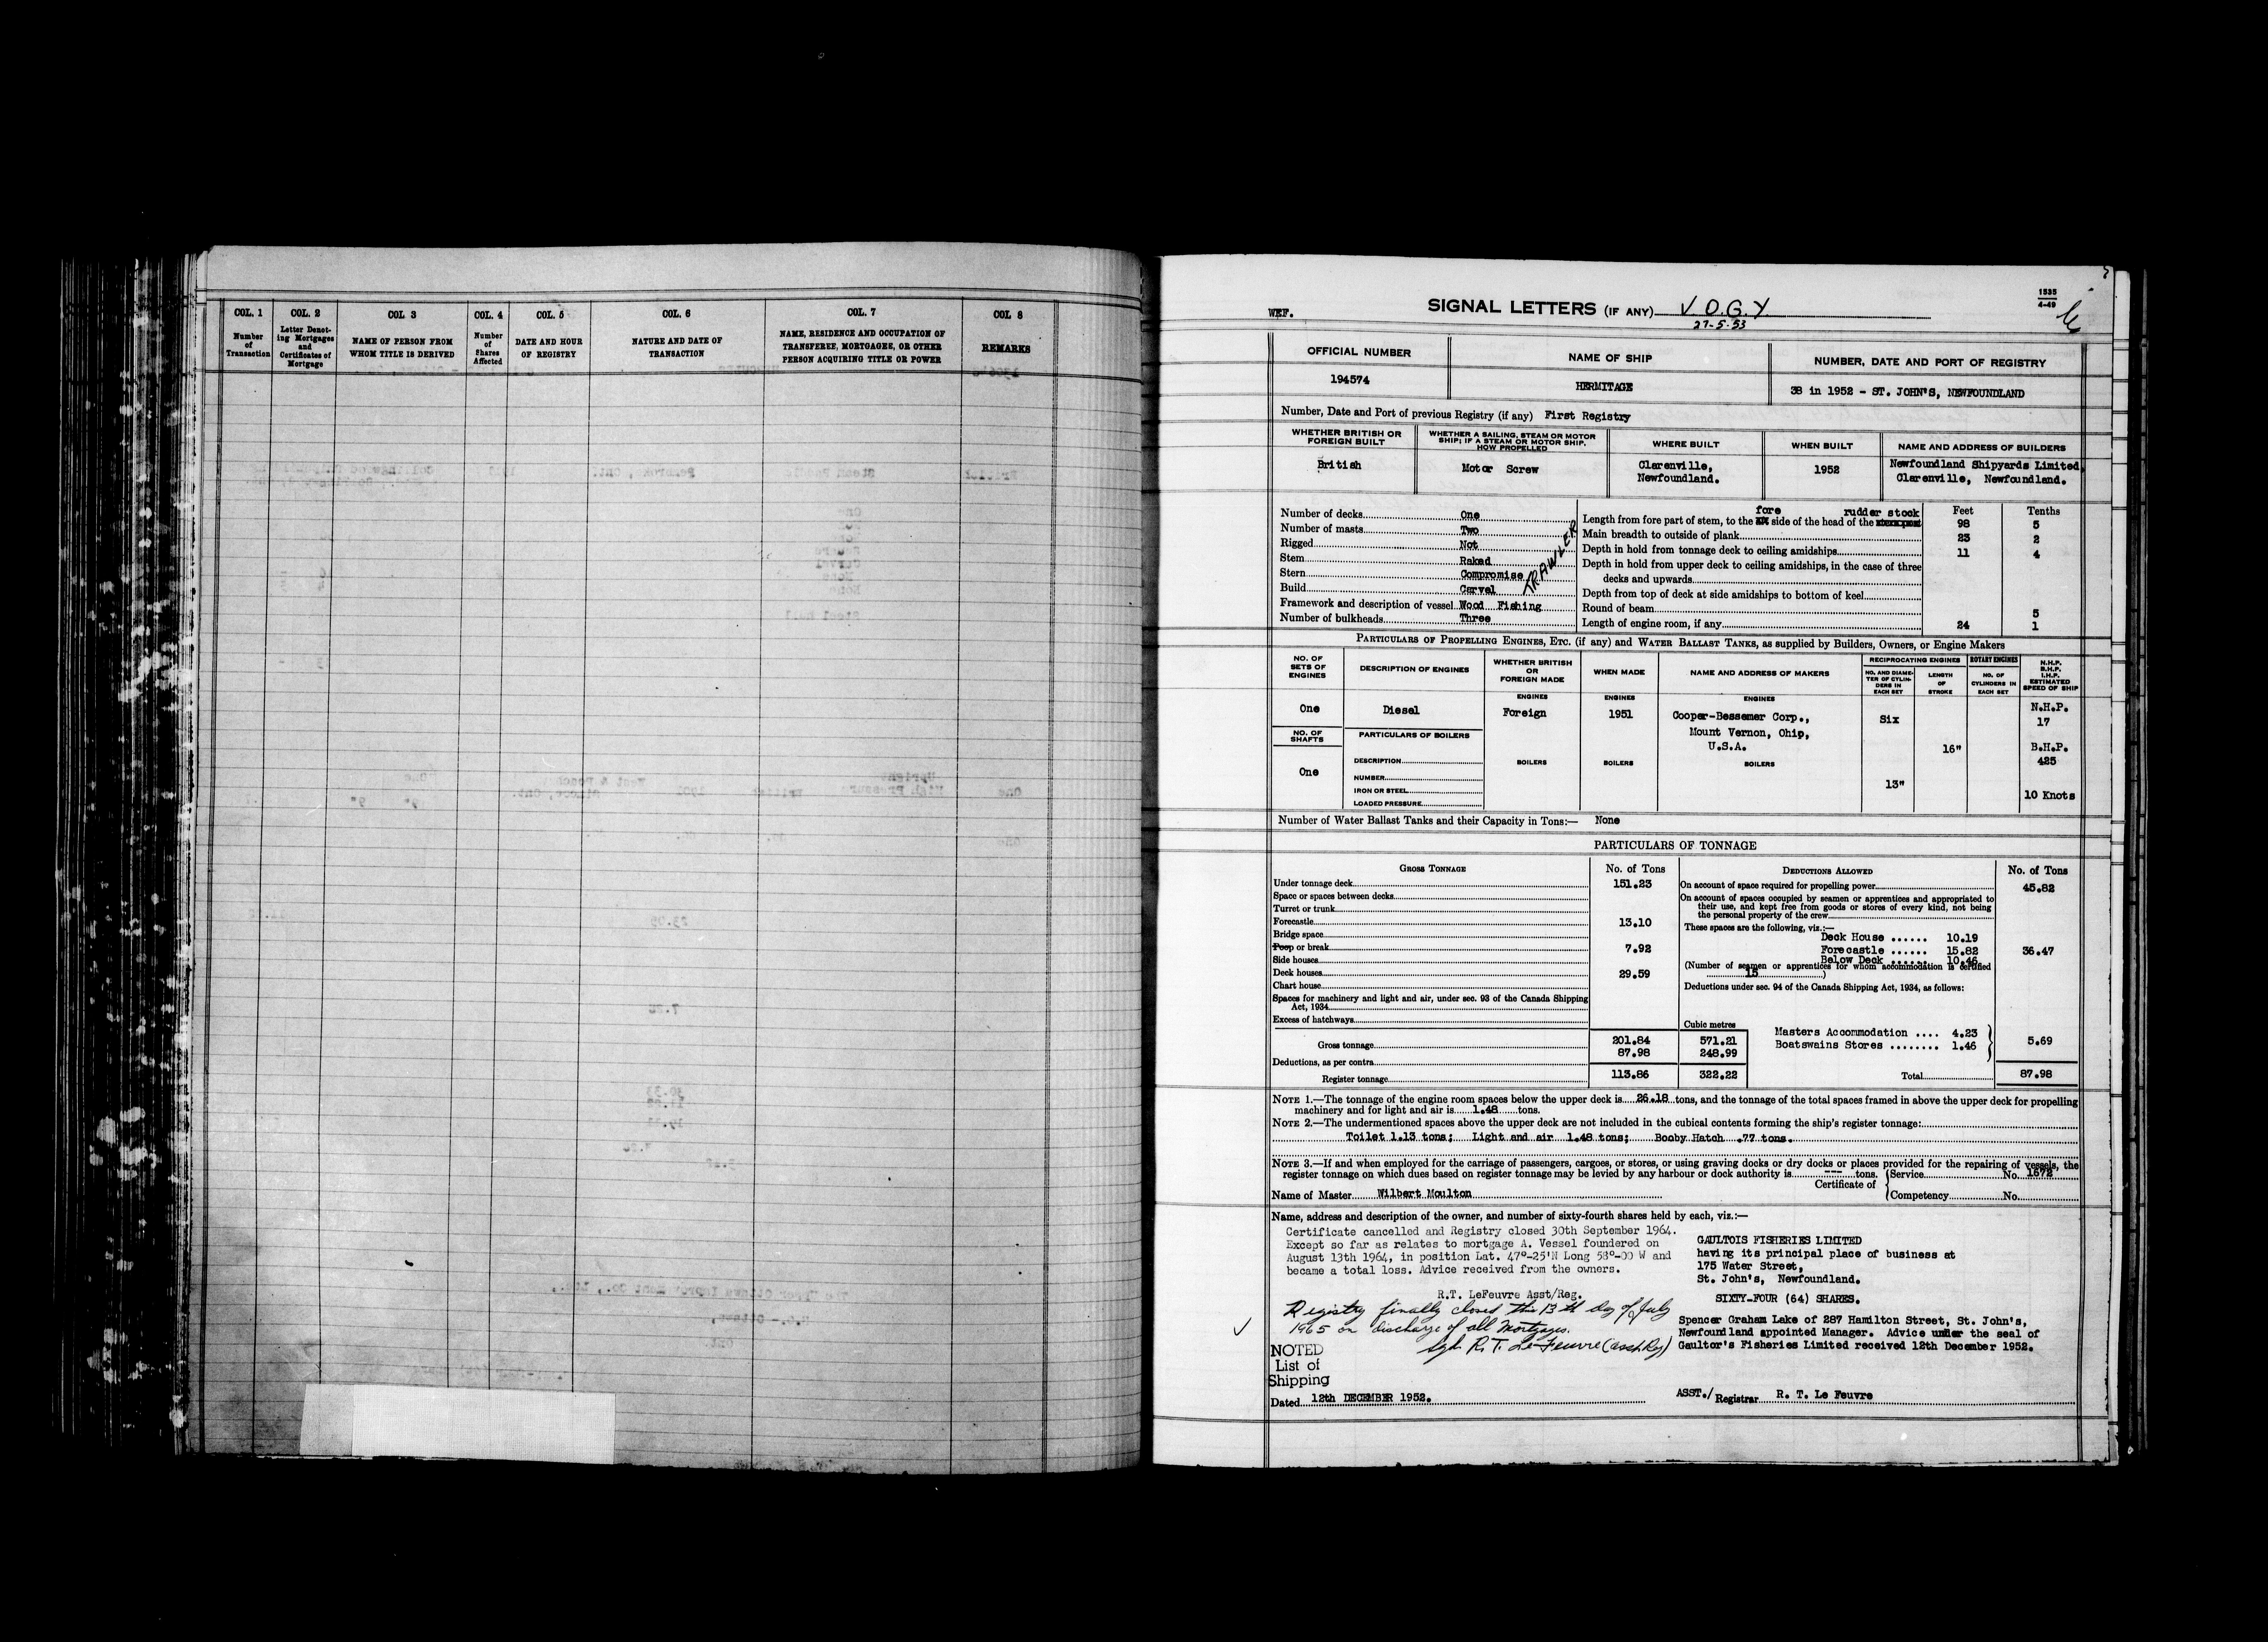 COL. 1
Number
of
Transaction
COL. 2
Letter Denot-
ing Mortgages
and
Certificates of
Mortgage
COL 3
NAME OF PERSON FROM
WHOM TITLE IS DERIVED
COL. 4
Number
of
Shares
Affected
COL. 5
DATE AND HOUR
OF REGISTRY
COL. 6
NATURE AND DATE OF
TRANSACTION
COL. 7
NAME, RESIDENCE AND OCCUPATION OF
TRANSFEREE, MORTGAGES, OR OTHER
PERSON ACQUIRING TITLE OR POWER
COL 8
REMARKS
1535
4-49
WEF.
SIGNAL LETTERS (IF ANY) V.O.G.Y
27-5-53
OFFICIAL NUMBER
194574
NAME OF SHIP
HERMITAGE
NUMBER, DATE AND PORT OF REGISTRY
38 in 1952 - ST. JOHN'S, NEWFOUNDLAND
Number, Date and Port of previous Registry (if any) First Registry
WHETHER BRITISH OR
FOREIGN BUILT
British
WHETHER A SAILING, STEAM OR MOTOR
SHIP; IF A STEAM OR MOTOR SHIP,
HOW PROPELLED
Motor Screw
WHERE BUILT
Clarenville,
Newfoundland.
WHEN BUILT
1952
NAME AND ADDRESS OF BUILDERS
Newfoundland Shipyards Limited,
Clarenville, Newfoundland.
Number of decks One
Number of masts Two
Rigged Not
Stem Raked
Stern Compromise
Build Carvel
Framework and description of vessel Wood Fishing
Number of bulkheads Three
TRAWLER
fore rudder stock
Length from fore part of stem, to the side of the head of the
Main breadth to outside of plank
Depth in hold from tonnage deck to ceiling amidships
Depth in hold from upper deck to ceiling amidships, in the case of three
decks and upwards
Depth from top of deck at side amidships to bottom of keel
Round of beam
Length of engine room, if any
Feet Tenths
98 5
23 2
11 4
5
24 1
PARTICULARS OF PROPELLING ENGINES, ETC. (if any) and WATER BALLAST TANKS, as supplied by Builders, Owners, or Engine Makers
NO. OF
SETS OF
ENGINES
One
NO. OF
SHAFTS
One
DESCRIPTION OF ENGINES
Diesel
PARTICULARS OF BOILERS
DESCRIPTION
NUMBER
IRON OR STEEL
LOADED PRESSURE
WHETHER BRITISH
OR
FOREIGN MADE
ENGINES
Foreign
BOILERS
WHEN MADE
ENGINES
1951
BOILERS
NAME AND ADDRESS OF MAKERS
ENGINES
Cooper-Bessemer Corp.,
Mount Vernon, Ohip,
U.S.A.
BOILERS
RECIPROCATING ENGINES
NO. AND DIAME-
TER OF CYLIN-
DERS IN
EACH SET
Six
13"
LENGTH
OF
STROKE
16"
ROTARY ENGINES
NO. OF
CYLINDERS IN
EACH SET
N.H.P.
B.H.P.
I.H.P.
ESTIMATED
SPEED OF SHIP
N.H.P.
17
B.H.P.
425
10 Knots
Number of Water Ballast Tanks and their Capacity in Tons:— None
PARTICULARS OF TONNAGE
GROSS TONNAGE No. of Tons
Under tonnage deck 151.23
Space or spaces between decks
Turret or trunk
Forecastle 13.10
Bridge space
Poop or break 7.92
Side houses
Deck houses 29.59
Chart house
Spaces for machinery and light and air, under sec. 93 of the Canada Shipping
Act, 1934
Excess of hatchways
Cubic metres
Gross tonnage 201.84 571.21
Deductions, as per contra 87.98 248.99
Register tonnage 113.86 322.22
DEDUCTIONS ALLOWED No. of Tons
On account of space required for propelling power 45.82
On account of spaces occupied by seamen or apprentices and appropriated to
their use, and kept free from goods or stores of every kind, not being
the personal property of the crew
These spaces are the following, viz.:—
Deck House ...... 10.19
Forecastle ...... 15.82 36.47
Below Deck ...... 10.46
(Number of seamen or apprentices for whom accommodation is certified
15 )
Deductions under sec. 94 of the Canada Shipping Act, 1934, as follows:
Masters Accommodation .... 4.23
Boatswains Stores ........ 1.46 5.69
Total 87.98
NOTE 1.—The tonnage of the engine room spaces below the upper deck is 26.18 tons, and the tonnage of the total spaces framed in above the upper deck for propelling
machinery and for light and air is 1.48 tons.
NOTE 2.—The undermentioned spaces above the upper deck are not included in the cubical contents forming the ship's register tonnage:
Toilet 1.13 tons; Light and air 1.48 tons; Booby Hatch .77 tons.
NOTE 3.—If and when employed for the carriage of passengers, cargoes, or stores, or using graving docks or dry docks or places provided for the repairing of vessels, the
register tonnage on which dues based on register tonnage may be levied by any harbour or dock authority is --- tons.
Name of Master Wilbert Moulton
Certificate of
Service No. 1572
Competency No.
Name, address and description of the owner, and number of sixty-fourth shares held by each, viz.:—
Certificate cancelled and Registry closed 30th September 1964.
Except so far as relates to mortgage A. Vessel foundered on
August 13th 1964, in position Lat. 47°-25'N Long 58°-00 W and
became a total loss. Advice received from the owners.
R.T. LeFeuvre Asst/Reg.
Registry finally closed this 13th day of July
1965 on discharge of all Mortgages.
Sgd. R. T. Le Feuvre (asst. Reg)
NOTED
List of
Shipping
GAULTOIS FISHERIES LIMITED
having its principal place of business at
175 Water Street,
St. John's, Newfoundland.
SIXTY-FOUR (64) SHARES.
Spencer Graham Lake of 287 Hamilton Street, St. John's,
Newfoundland appointed Manager. Advice under the seal of
Gaultor's Fisheries Limited received 12th December 1952.
Dated 12th DECEMBER 1952.
ASST./ Registrar R. T. Le Feuvre